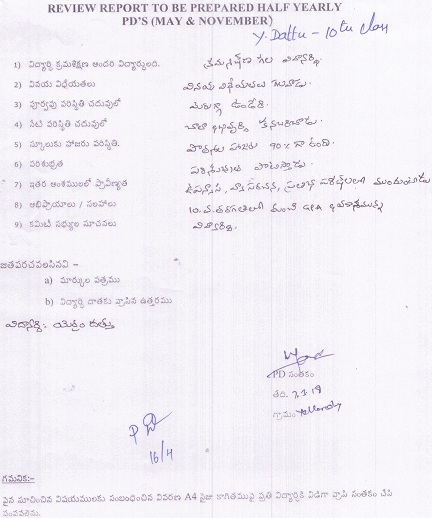 REVIEW REPORT TO BE PREPARED HALF YEARLY
PD'S (MAY & NOVEMBER)
Y. Dattu - 10th class
1) విద్యార్థి క్రమశిక్షణ అందరి విద్యార్థులది. క్రమశిక్షణ గల విద్యార్థి
2) వినయ విధేయతలు వినయ విధేయతలు గలవాడు.
3) పూర్వపు పరిస్థితి చదువులో మరుగ్గా ఉండేది.
4) నేటి పరిస్థితి చదువులో చాలా అభివృద్ధి కనబరిచాడు.
5) స్కూలుకు హాజరు పరిస్థితి. హాజరు 90% గా ఉంది.
6) పరిశుభ్రత పరిశుభ్రత పాటిస్తాడు.
7) ఇతర అంశములలో ప్రావీణ్యత ఉపన్యాస, వ్యాసరచన, ముందుంటాడు
8) అభిప్రాయాలు / సలహాలు 10.వ.తరగతిలో మంచి GPA
9) కమిటీ సభ్యుల సూచనలు విద్యార్థి.
జతపరచవలసినవి –
a) మార్కుల పత్రము
b) విద్యార్థి దాతకు వ్రాసిన ఉత్తరము
విద్యార్థి:- యెర్రం దత్తు
PD సంతకం
తేది. 7.3.18
గ్రామం Yellandu
16/4
గమనిక:-
పైన సూచించిన విషయములకు సంబంధించిన వివరణ A4 సైజు కాగితముపై ప్రతి విద్యార్థికి విడిగా వ్రాసి సంతకం చేసి
పంపవలెను.